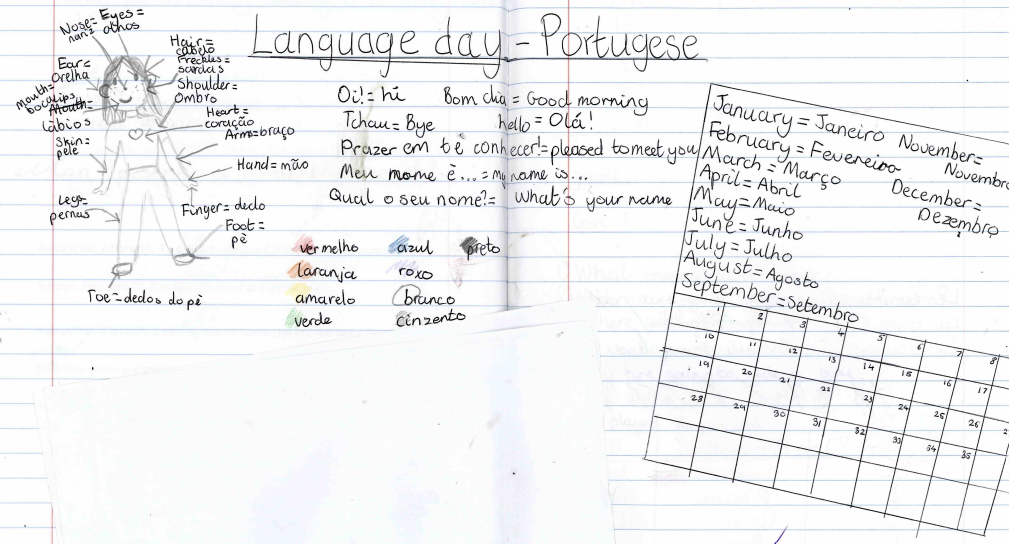 Language day - Portugese
Nose=
nariz
Eyes=
olhos
Hair=
cabelo
Freckles=
sardas
Ear=
Orelha
Shoulder=
Ombro
mouth=
boca lips
Mouth=
Lábios
Heart=
coração
Skin=
pele
Arms=braço
Hand=mão
Legs=
pernas
Finger=dedo
Foot=
pè
Toe=dedos do pè
Oi!= hi
Bom dia = Good morning
Tchau= Bye
hello= Olá!
Prazer em tè conhecer!=pleased to meet you
Meu nome è...= my name is...
Qual o seu nome?= what's your name
vermelho
azul
preto
laranja
roxo
amarelo
branco
verde
cinzento
January=Janeiro
February=Fevereiro
March=Março
April=Abril
May=Maio
June=Junho
July=Julho
August=Agosto
September=Setembro
November=
Novembro
December=
Dezembro
1 2 3 4 5 6 7 8
10 11 12 13 14 15 16 17
19 20 21 22 23 24 25 26
28 29 30 31 32 33 34 35